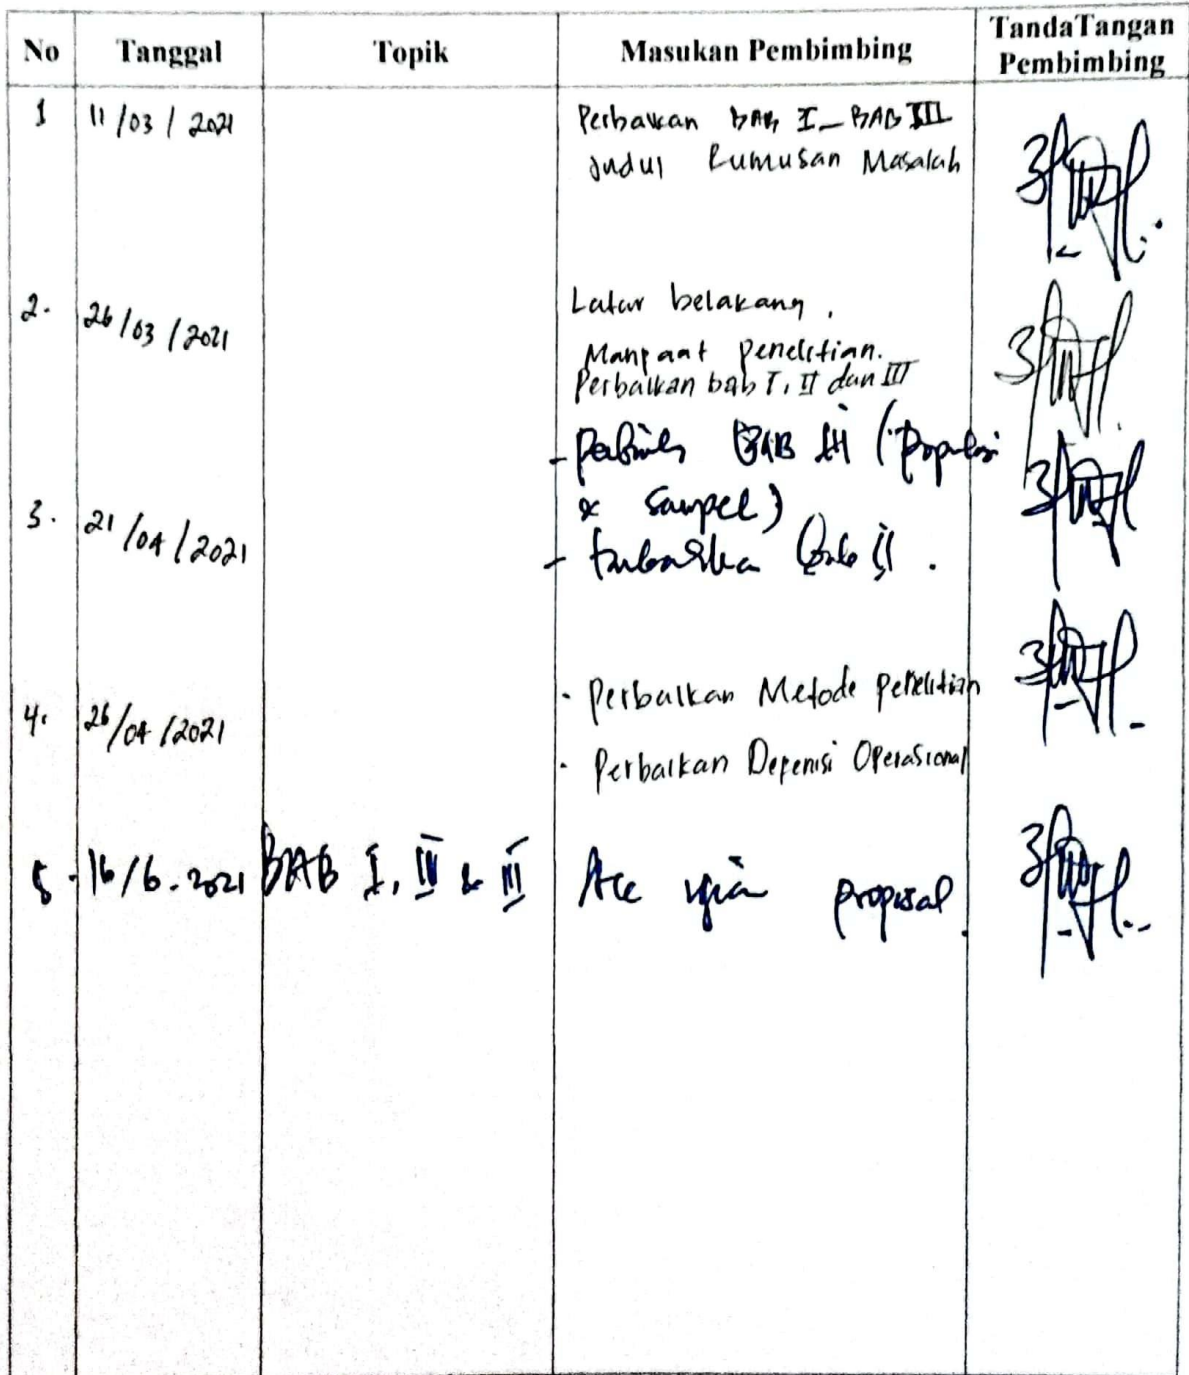 No Tanggal Topik Masukan Pembimbing TandaTangan Pembimbing
1 11/03/2021 Perbaikan BAB I - BAB III
Judul Rumusan Masalah
2. 26/03/2021 Latar belakang,
Manpaat penelitian.
Perbaikan bab I, II dan III
- BAB III (Populasi
3. 21/04/2021 & Sampel)
- Bab II.
4. 26/04/2021 · Perbaikan Metode penelitian
· Perbaikan Depenisi Operasional
5. 16/6.2021 BAB I, II & III Acc ujian proposal.